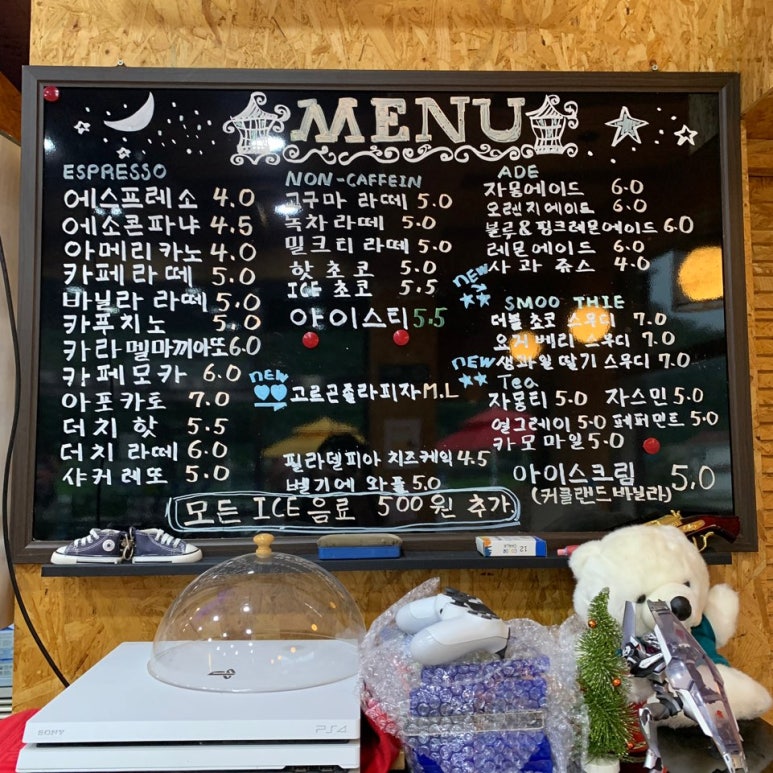 MENU
ESPRESSO
에스프레소 4.0
에소콘파냐 4.5
아메리카노 4.0
카페라떼 5.0
바닐라 라떼 5.0
카푸치노 5.0
카라멜마끼아또 6.0
카페모카 6.0
아포카토 7.0
더치 핫 5.5
더치 라떼 6.0
샤커레또 5.0
NON-CAFFEIN
고구마 라떼 5.0
녹차 라떼 5.0
밀크티 라떼 5.0
핫 초코 5.0
ICE 초코 5.5
아이스티 5.5
NEW
고르곤졸라피자 M.L
필라델피아 치즈케익 4.5
벨기에 와플 5.0
ADE
자몽에이드 6.0
오렌지에이드 6.0
블루&핑크레몬에이드 6.0
레몬에이드 6.0
사과 쥬스 4.0
NEW
SMOO THIE
더블 초코 스무디 7.0
요거 베리 스무디 7.0
NEW 생과일 딸기 스무디 7.0
Tea
자몽티 5.0 자스민 5.0
얼그레이 5.0 페퍼민트 5.0
카모마일 5.0
아이스크림 5.0
(커클랜드바닐라)
모든 ICE 음료 500원 추가
SONY PS4